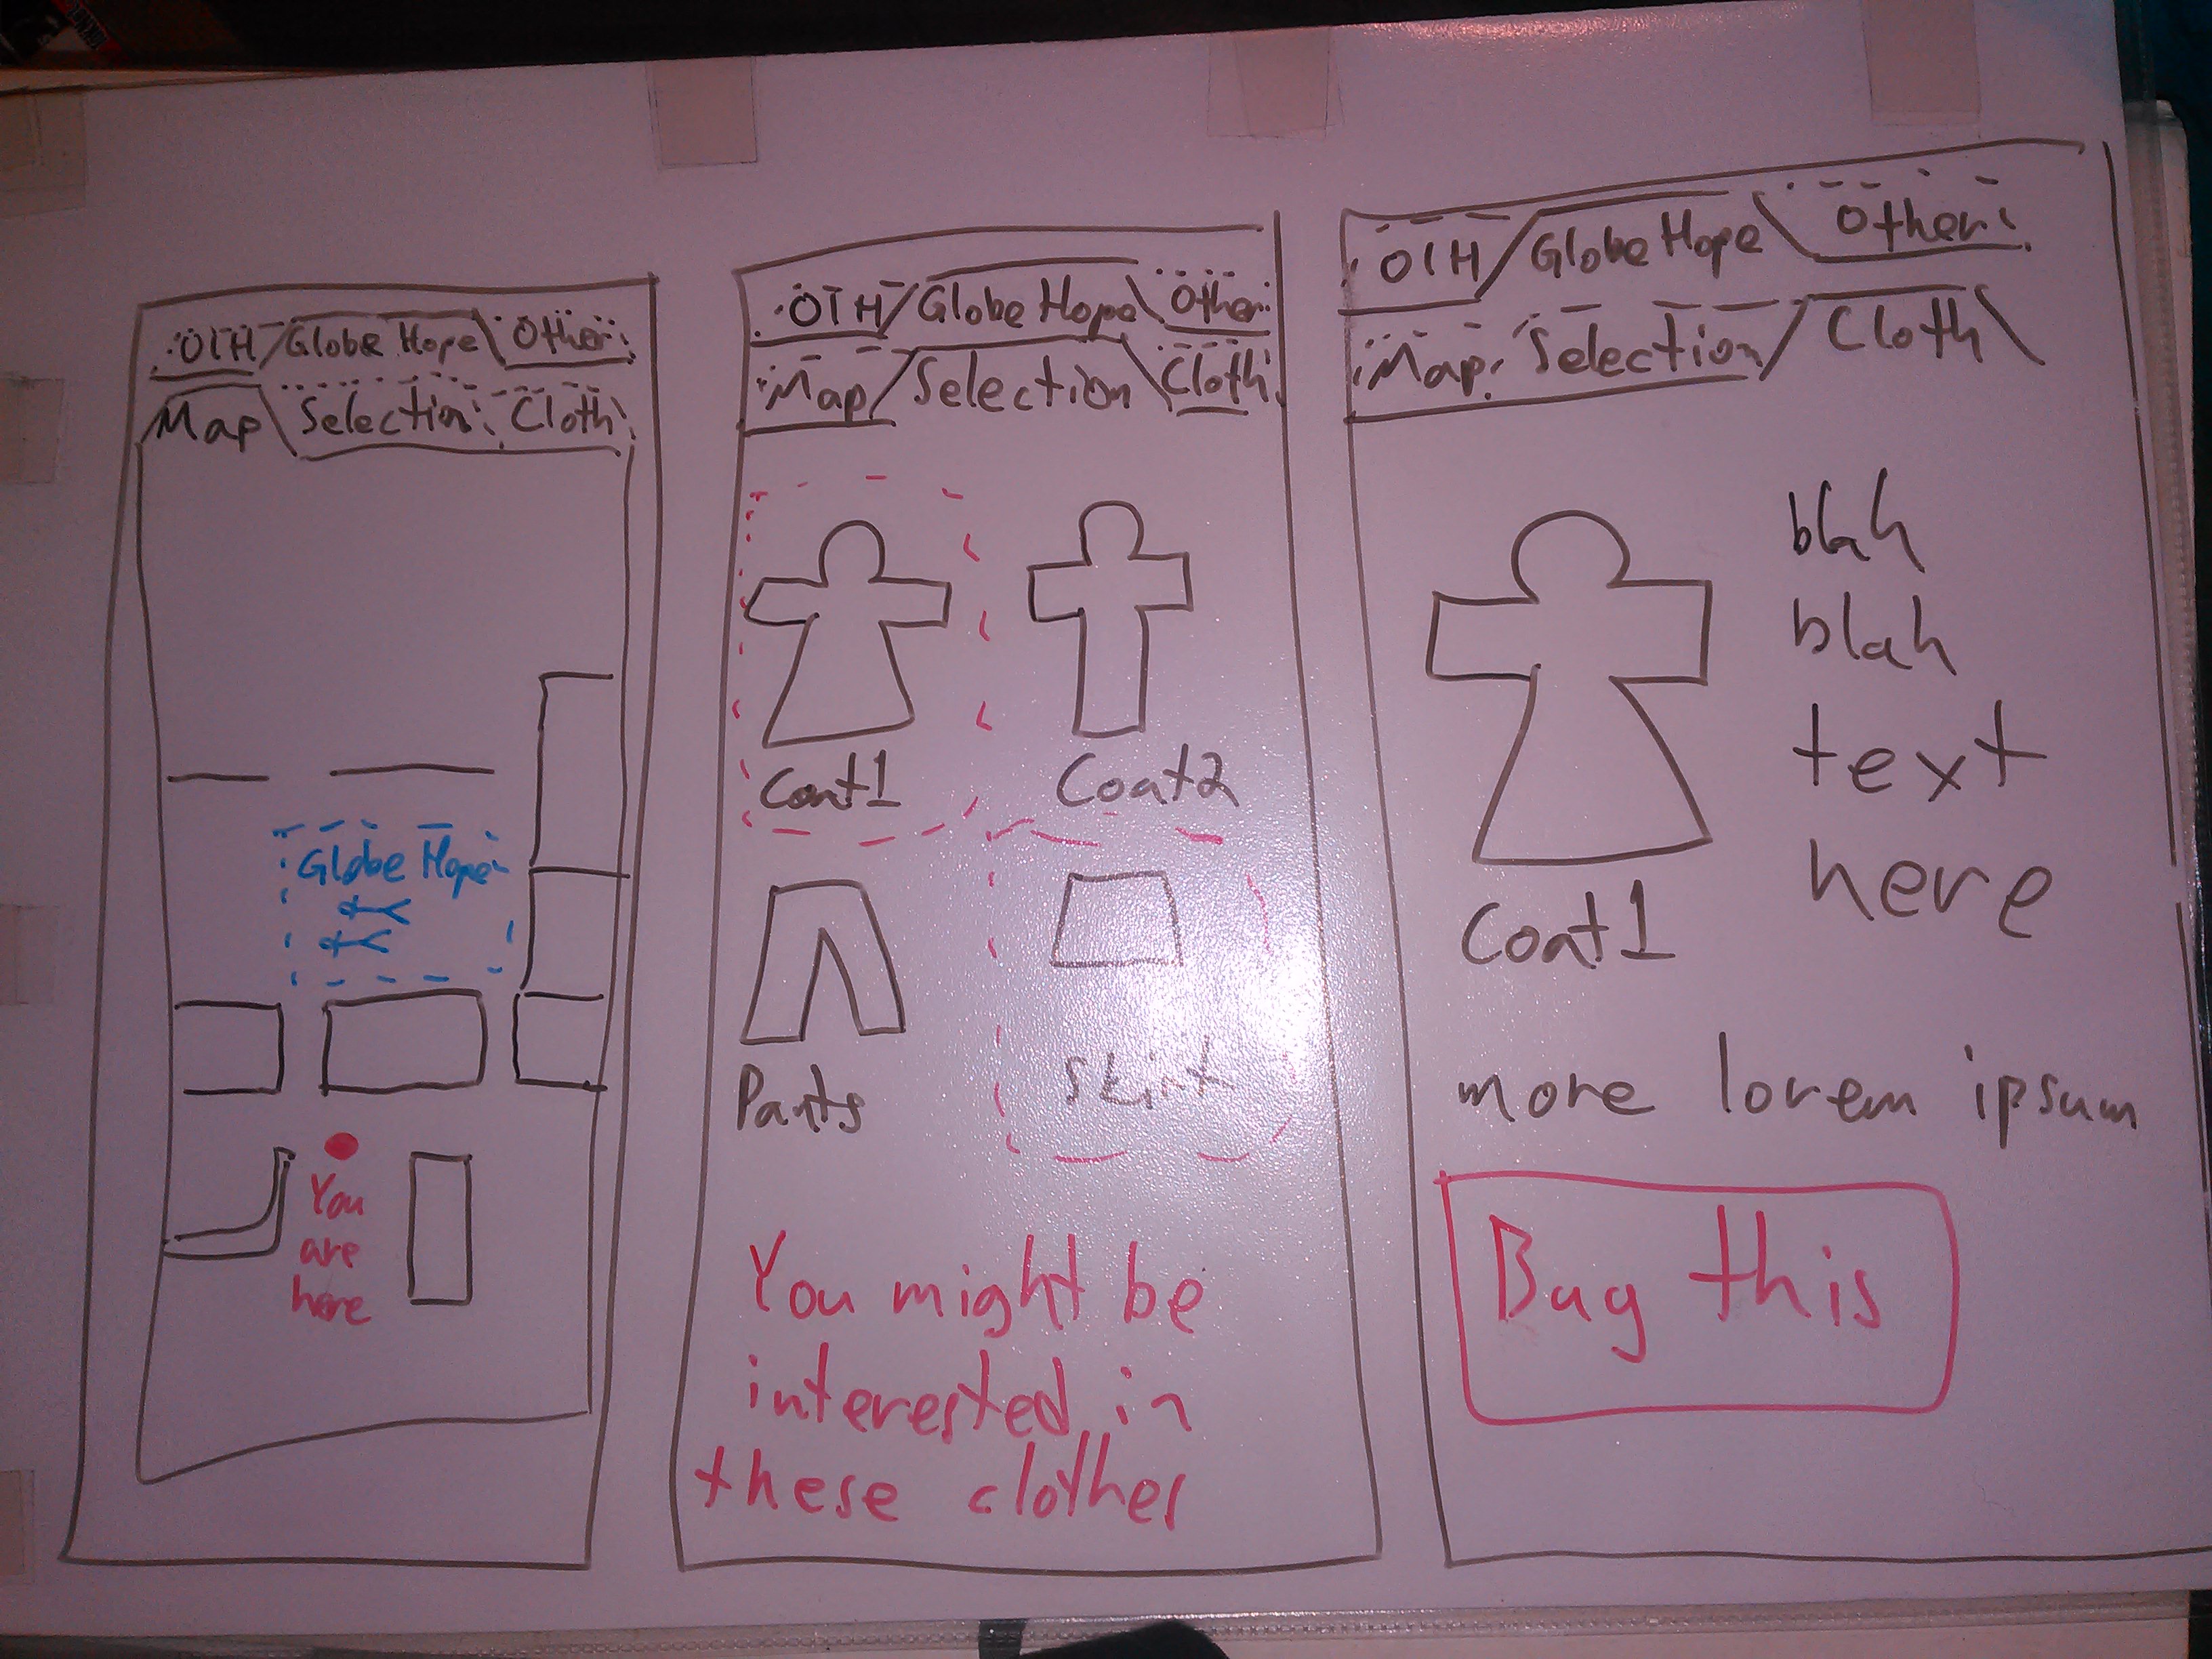 OIH Globe Hope Other
Map Selection Cloth
Globe Hope
You
are
here
OIH Globe Hope Other
Map Selection Cloth
Coat1 Coat2
Pants Skirt
You might be
interested in
these clothes
OIH Globe Hope Other
Map Selection Cloth
blah
blah
text
here
Coat1
more lorem ipsum
Buy this